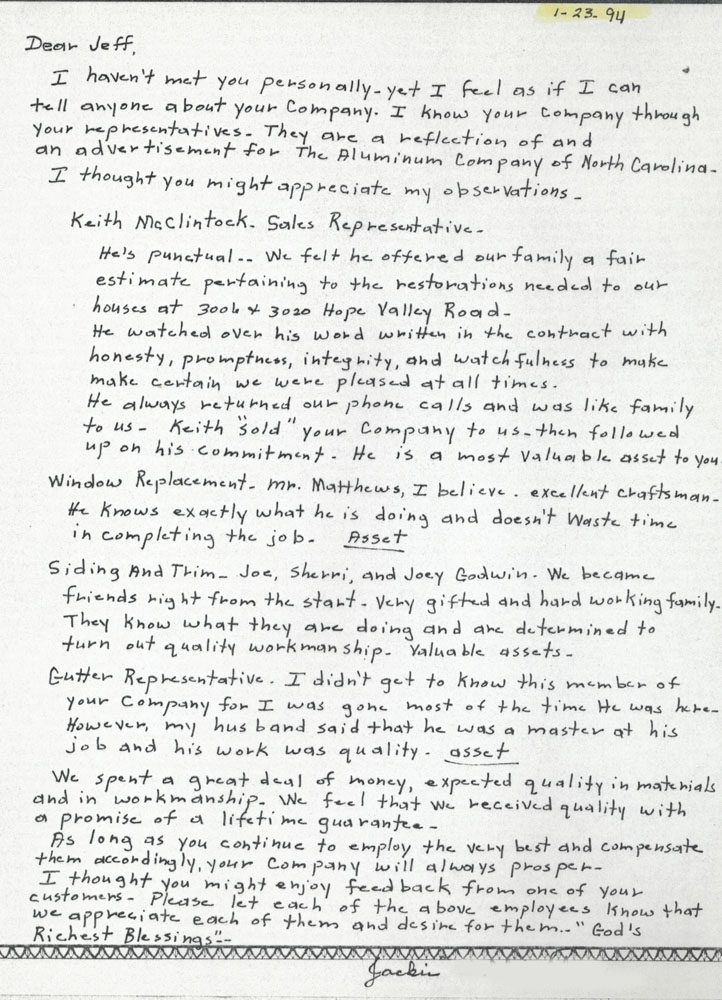 1-23-94
Dear Jeff,
I haven't met you personally-yet I feel as if I can
tell anyone about your Company. I know your company through
your representatives- They are a reflection of and
an advertisement for The Aluminum Company of North Carolina-
I thought you might appreciate my observations-
Keith McClintock- Sales Representative-
He's punctual-- We felt he offered our family a fair
estimate pertaining to the restorations needed to our
houses at 3006 & 3020 Hope Valley Road-
He watched over his word written in the contract with
honesty, promptness, integrity, and watchfulness to make
make certain we were pleased at all times.
He always returned our phone calls and was like family
to us- Keith "sold" your Company to us-then followed
up on his commitment- He is a most valuable asset to you
Window Replacement- Mr. Matthews, I believe. excellent craftsman-
He knows exactly what he is doing and doesn't waste time
in completing the job- Asset
Siding And Trim- Joe, Sherri, and Joey Godwin- We became
friends right from the start- Very gifted and hard working family-
They know what they are doing and are determined to
turn out quality workmanship- Valuable assets-
Gutter Representative. I didn't get to know this member of
your Company for I was gone most of the time He was here-
However, my husband said that he was a master at his
job and his work was quality- asset
We spent a great deal of money, expected quality in materials
and in workmanship- We feel that we received quality with
a promise of a lifetime guarantee-
As long as you continue to employ the very best and compensate
them accordingly, your Company will always prosper-
I thought you might enjoy feedback from one of your
customers- Please let each of the above employees know that
we appreciate each of them and desire for them--"God's
Richest Blessings"--
Jackie